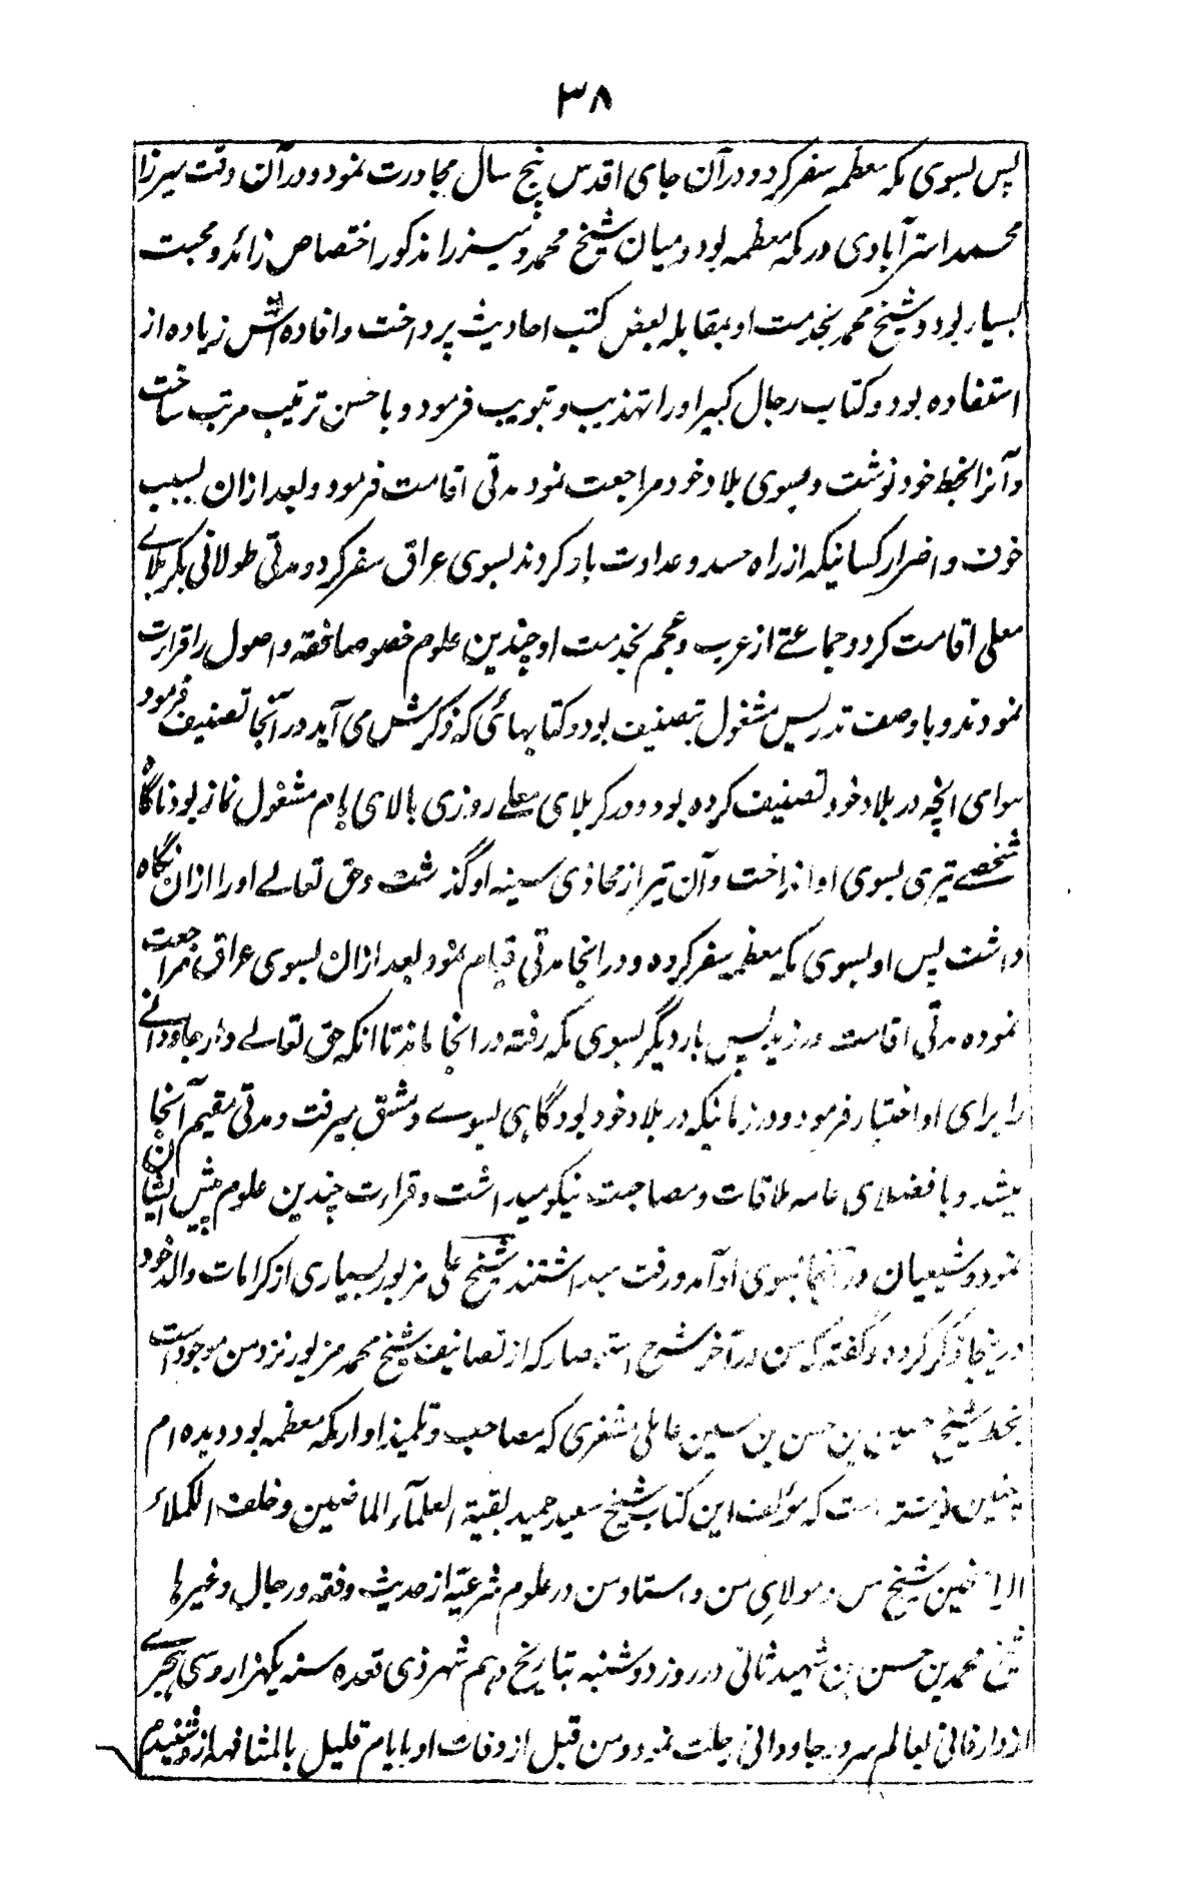 ۳۸
پس بسوی مکه معظمه سفر کرد و در آن جای اقدس پنج سال مجاورت نمود و در آن وقت میرزا
محمد استرآبادی در مکه معظمه بود و میان شیخ محمد و میرزا مذکور اختصاص زائد و محبت
بسیار بود و شیخ محمد بخدمت او بمقابله بعض کتب احادیث پرداخت و افاده اش زیاده از
استفاده بود و کتاب رجال کبیر او را تهذیب و تبویب فرمود و با حسن ترتیب مرتب ساخت
و آنرا بخط خود نوشت و بسوی بلاد خود مراجعت نمود مدتی اقامت فرمود و بعد ازان بسبب
خوف و اضرار کسانیکه از راه حسد و عداوت باو کردند بسوی عراق سفر کرد و مدتی طولانی بکربلای
معلی اقامت کرد و جماعتے از عرب و عجم بخدمت او چندین علوم خصوصا فقه و اصول را قرارت
نمودند و با وصف تدریس مشغول بتصنیف بود و کتابهائی که ذکرش می آید در آنجا تصنیف فرمود
سوای انچه در بلاد خود تصنیف کرده بود و در کربلای معلے روزی بالای بام مشغول نماز بود ناگاه
شخصے تیری بسوی او انداخت و آن تیر از محاذی سینه او گذشت و حق تعالے او را ازان نگاه
داشت پس او بسوی مکه معظمه سفر کرده و در انجا مدتی قیام نمود و بعد ازان بسوی عراق مراجعت
نموده مدتی اقامت ورزید پس بار دیگر بسوی مکه رفته در انجا ماند تا انکه حق تعالے دار جاودانے
را برای او اختیار فرمود و در زمانیکه در بلاد خود بود گاہی بسوے دمشق میرفت و مدتی مقیم آنجا
میشد و با فضلای عامه ملاقات و مصاحبت نیکو میداشت و قرارت چندین علوم پیش ایشان
نمود و شیعیان در آنجا بسوی او آمد و رفت میداشتند شیخ علی مزبور بسیاری از کرامات والد خود
درینجا ذکر کرده و گفته که من در آخر شرح استبصار که از تصانیف شیخ محمد مزبور نزد من موجود است
بخط شیخ حسین بن حسن بن حسین عاملی مشغری که مصاحب و تلمیذ او در مکه معظمه بود دیده ام
چنین نوشته است که مؤلف این کتاب شیخ سعید حمید بقیة العلمآء الماضین و خلف الکملاء
الراسخین شیخ من و مولای من و استاد من در علوم شرعیّه از حدیث و فقه و رجال و غیرها
شیخ محمد بن حسن بن شهید ثانی در روز دوشنبه بتاریخ دهم شهر ذی قعده سنه یکهزار و سی هجرے
از دار فانی بعالم سرور جاودانی رحلت نمود و من قبل از وفات او بایام قلیل بالمشافهه از و شنیدم